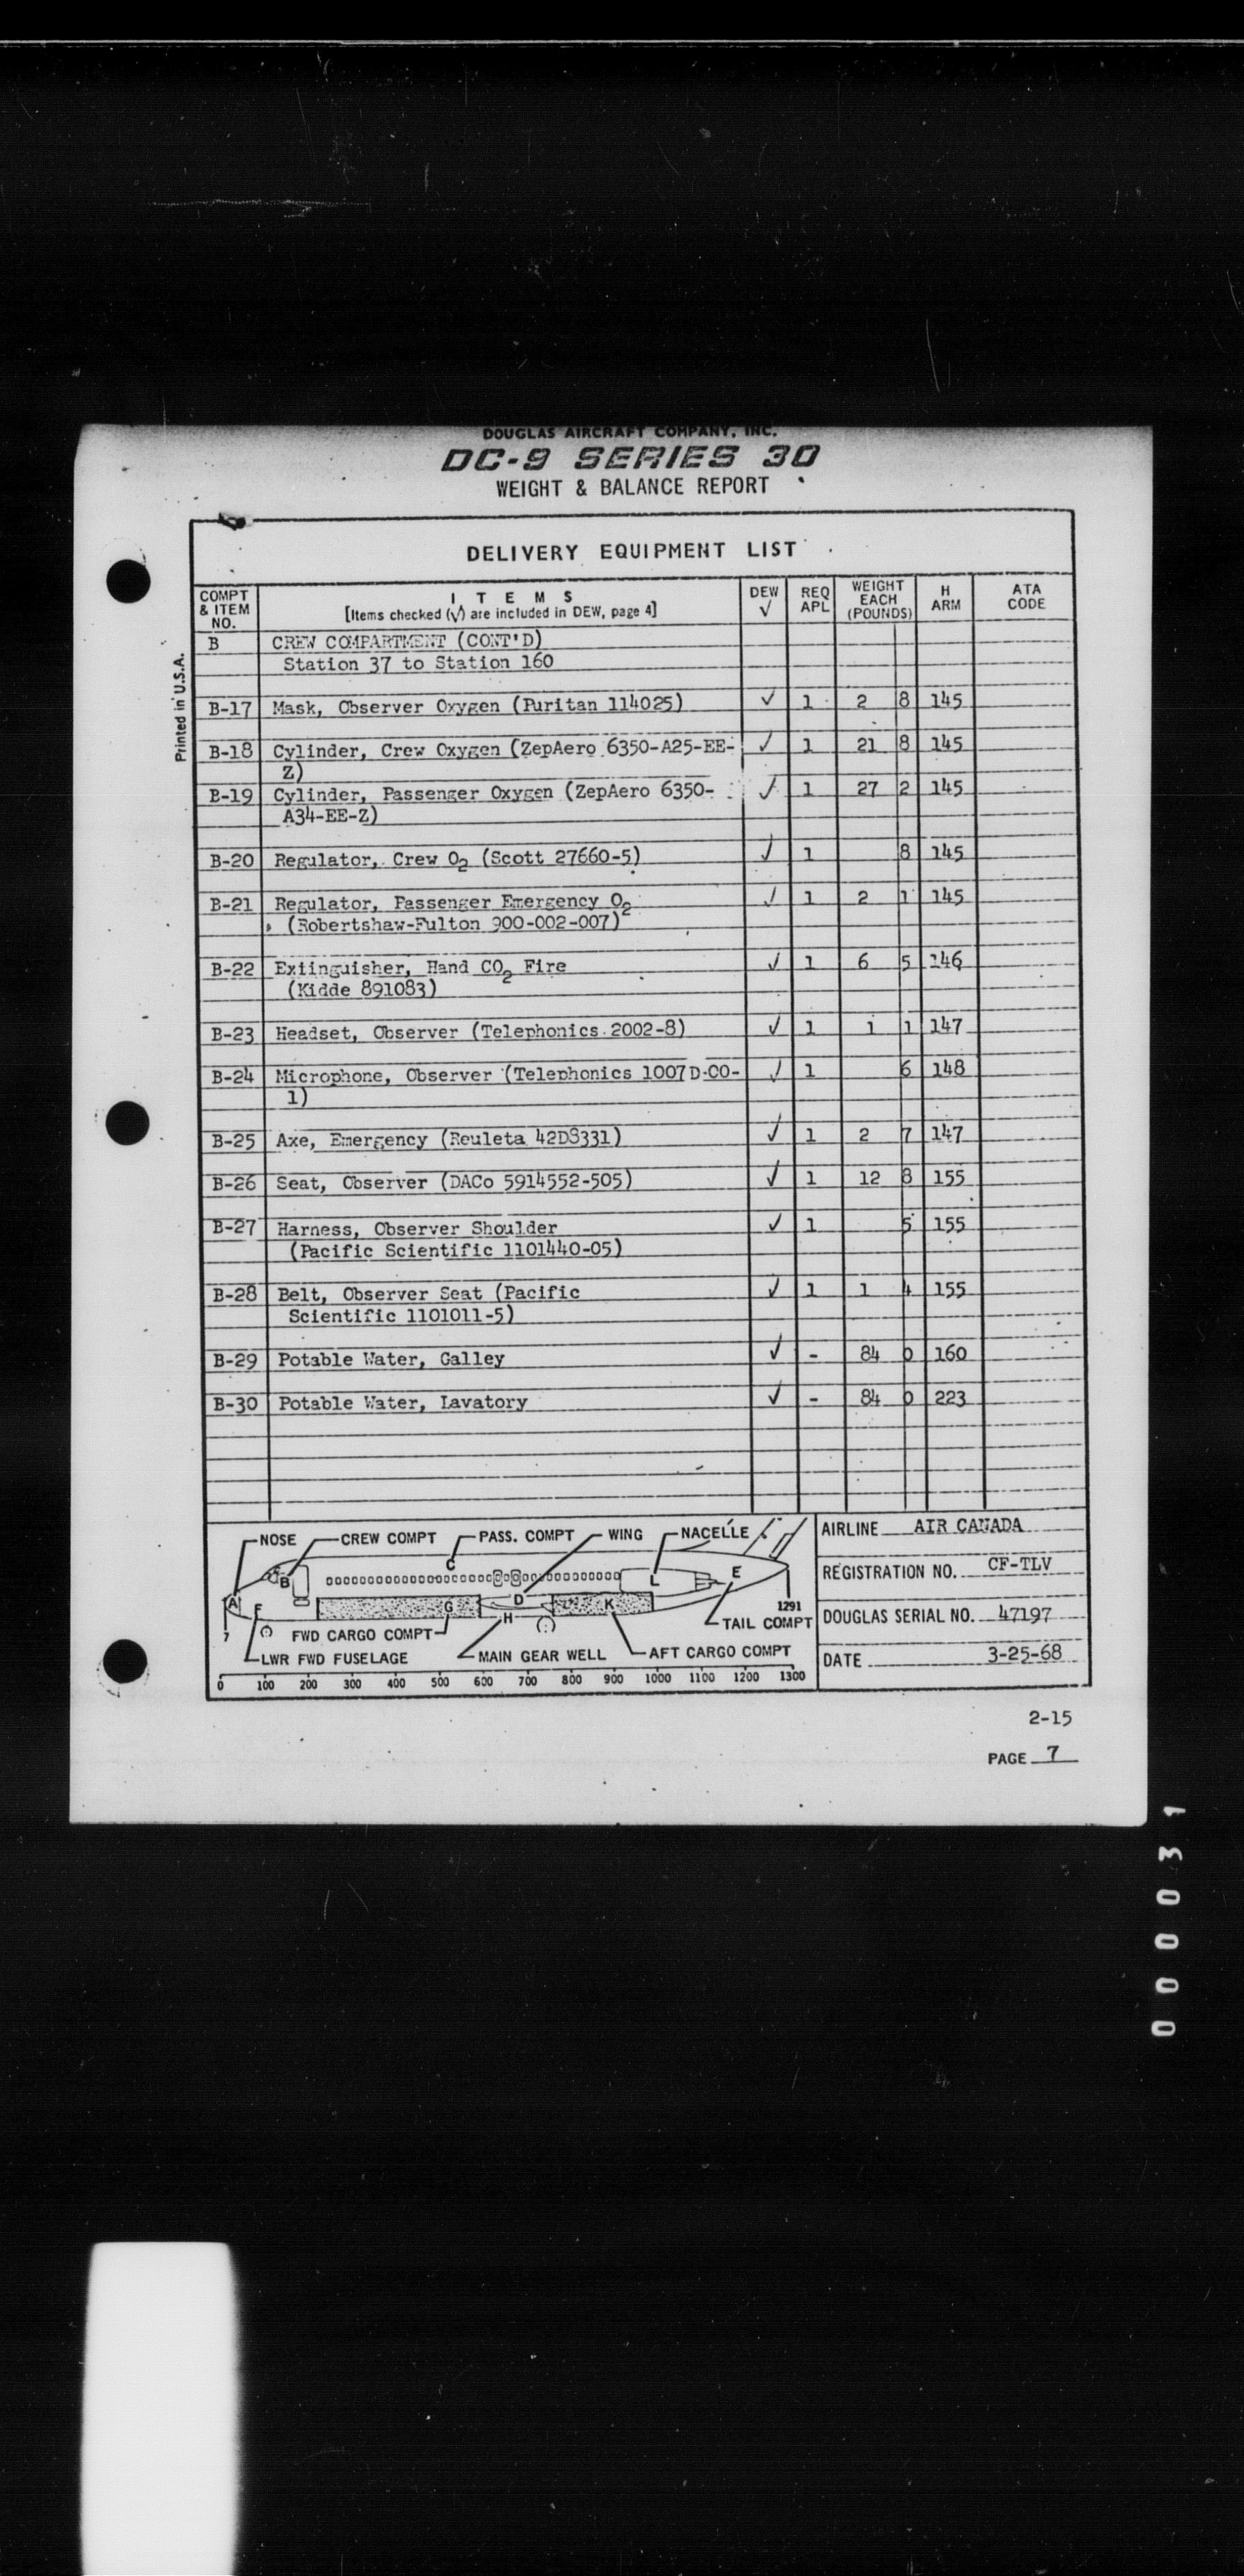 DOUGLAS AIRCRAFT COMPANY, INC.
DC-9 SERIES 30
WEIGHT & BALANCE REPORT
Printed in U.S.A.
DELIVERY EQUIPMENT LIST
COMPT & ITEM NO. | ITEMS [Items checked (√) are included in DEW, page 4] | DEW √ | REQ APL | WEIGHT EACH (POUNDS) | H ARM | ATA CODE
B CREW COMPARTMENT (CONT'D)
Station 37 to Station 160
B-17 Mask, Observer Oxygen (Puritan 114025) √ 1 2 8 145
B-18 Cylinder, Crew Oxygen (ZepAero 6350-A25-EE- √ 1 21 8 145
Z)
B-19 Cylinder, Passenger Oxygen (ZepAero 6350- √ 1 27 2 145
A34-EE-Z)
B-20 Regulator, Crew O2 (Scott 27660-5) √ 1 8 145
B-21 Regulator, Passenger Emergency O2 √ 1 2 1 145
(Robertshaw-Fulton 900-002-007)
B-22 Extinguisher, Hand CO2 Fire √ 1 6 5 146
(Kidde 891083)
B-23 Headset, Observer (Telephonics 2002-8) √ 1 1 1 147
B-24 Microphone, Observer (Telephonics 1007D-00- √ 1 6 148
1)
B-25 Axe, Emergency (Reuleta 42DS331) √ 1 2 7 147
B-26 Seat, Observer (DACo 5914552-505) √ 1 12 8 155
B-27 Harness, Observer Shoulder √ 1 5 155
(Pacific Scientific 1101440-05)
B-28 Belt, Observer Seat (Pacific √ 1 1 4 155
Scientific 1101011-5)
B-29 Potable Water, Galley √ - 84 0 160
B-30 Potable Water, Lavatory √ - 84 0 223
NOSE CREW COMPT PASS. COMPT WING NACELLE
A B C D E F G H K L
7 1291
FWD CARGO COMPT TAIL COMPT
LWR FWD FUSELAGE MAIN GEAR WELL AFT CARGO COMPT
0 100 200 300 400 500 600 700 800 900 1000 1100 1200 1300
AIRLINE AIR CANADA
REGISTRATION NO. CF-TLV
DOUGLAS SERIAL NO. 47197
DATE 3-25-68
2-15
PAGE 7
000031